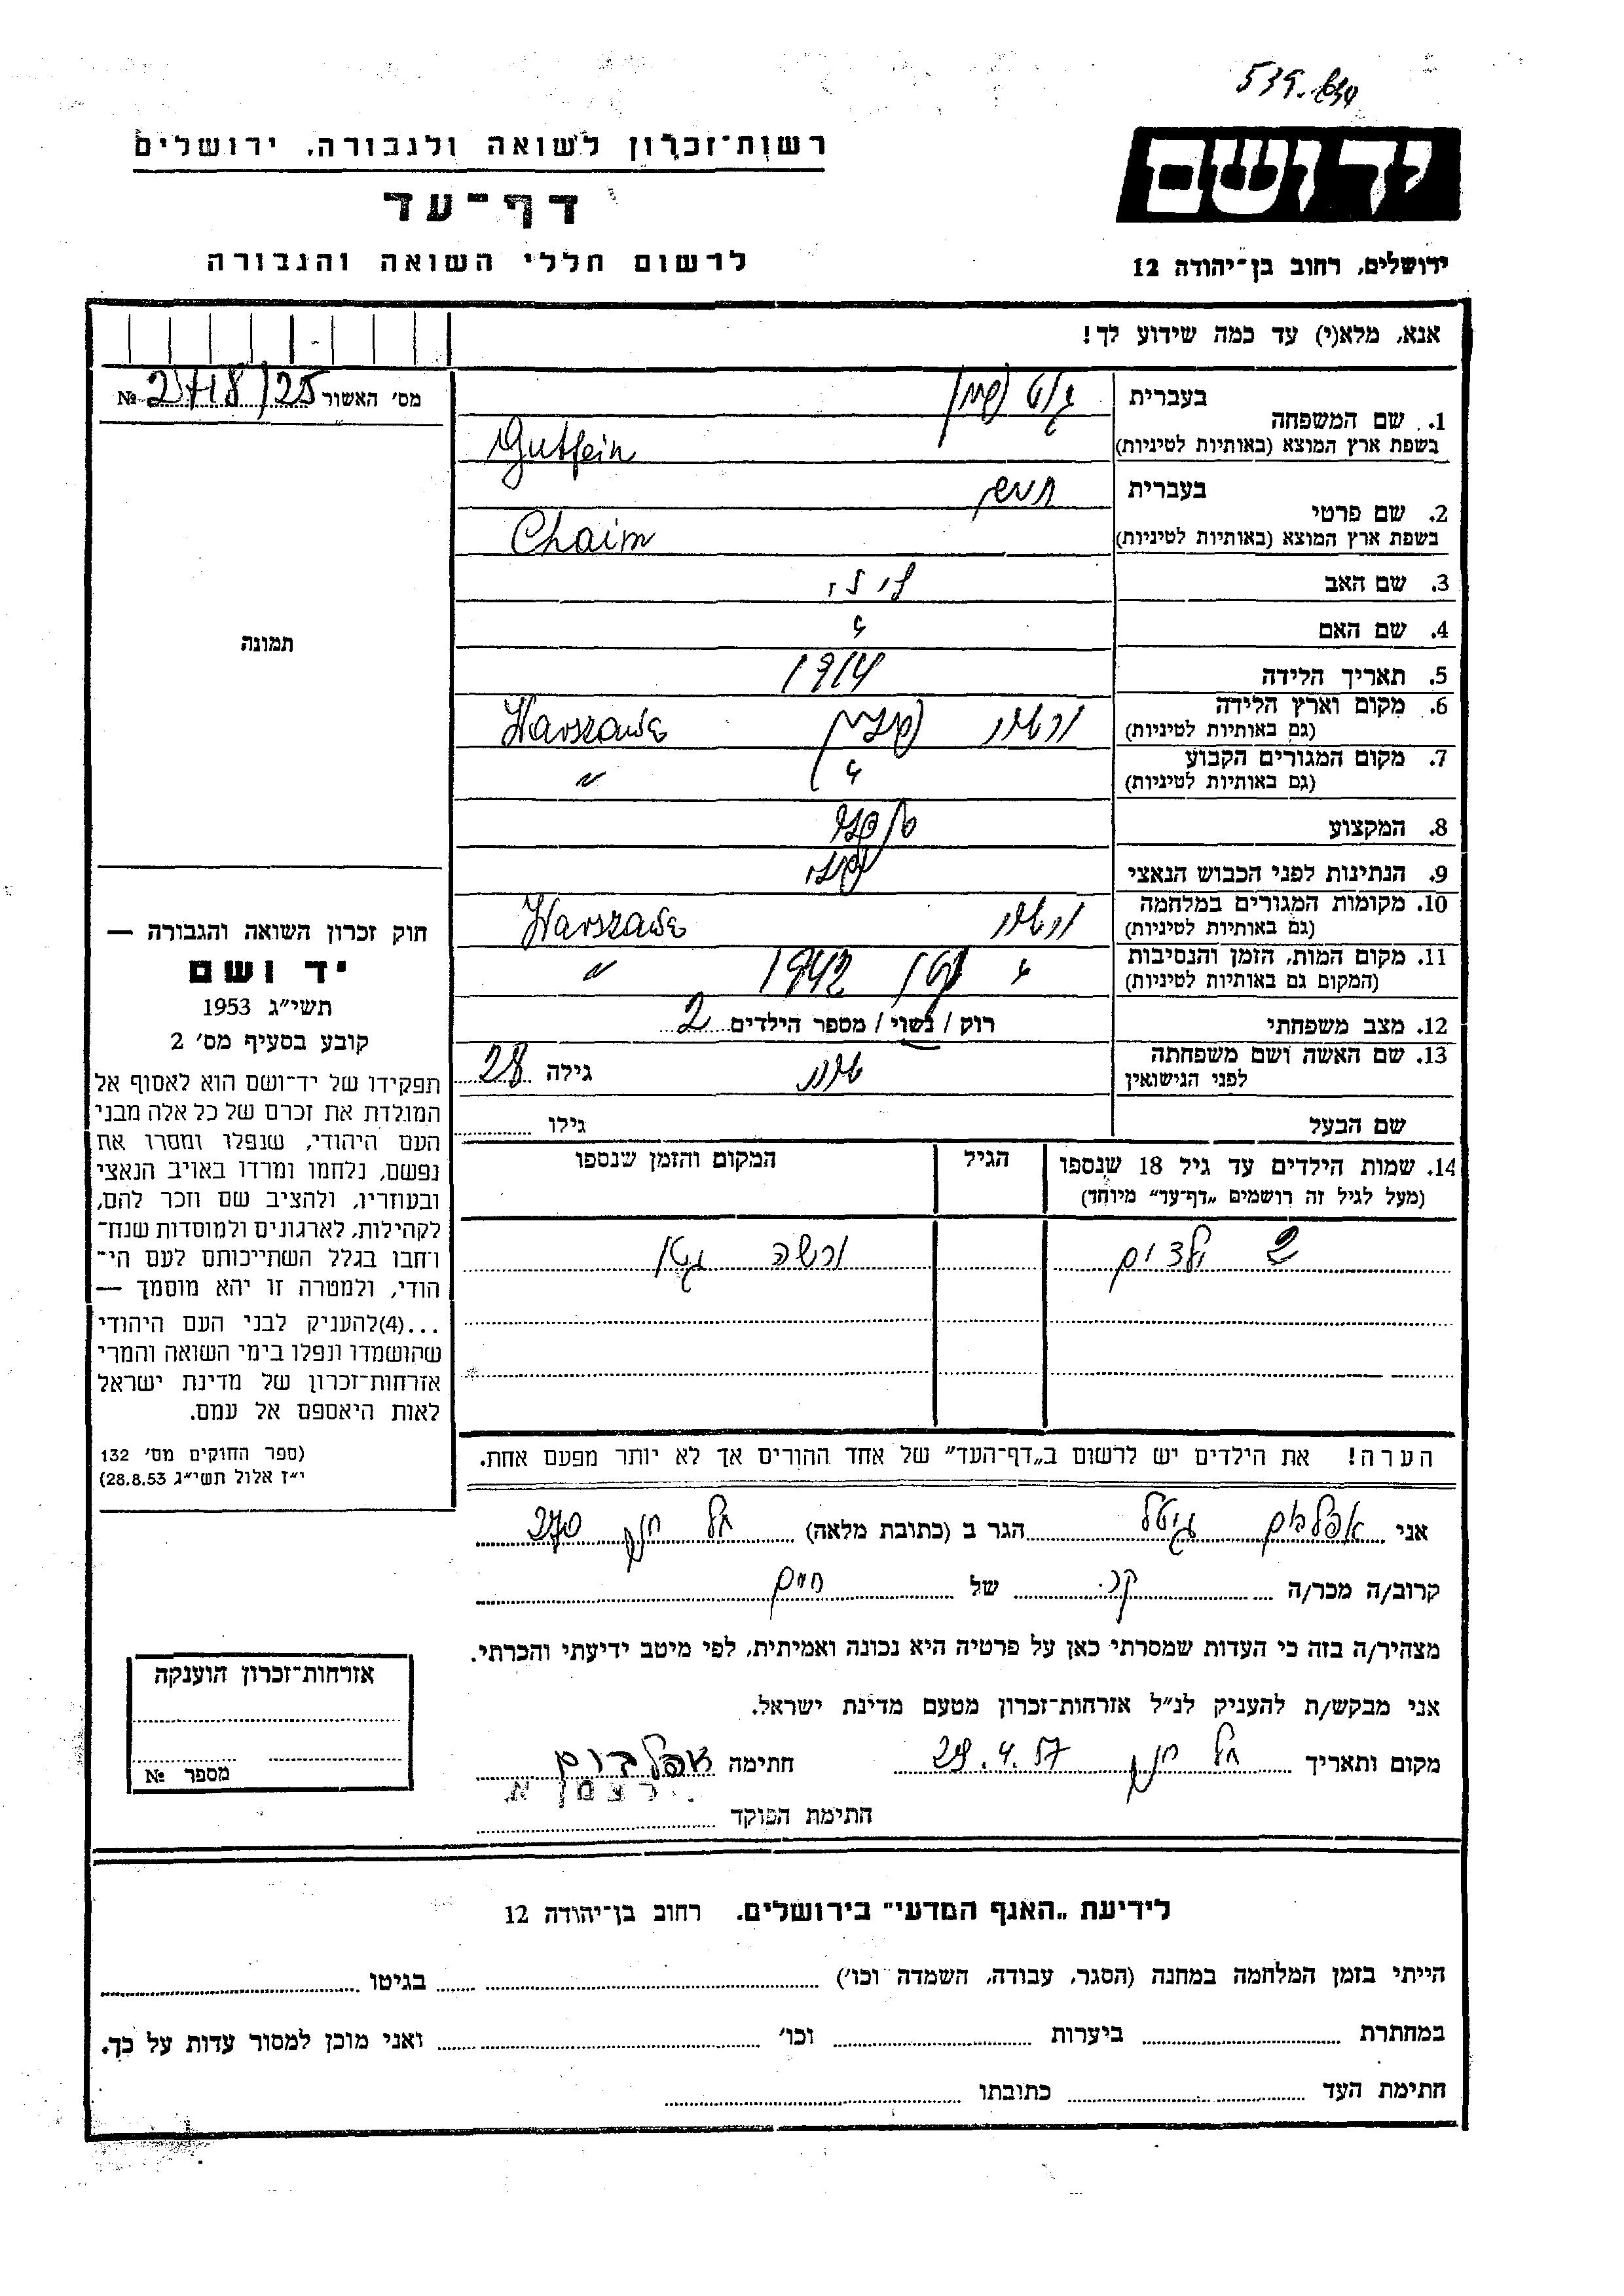 רשות־זכרון לשואה ולגבורה, ירושלים
דף־עד
לרשום חללי השואה והגבורה
יד ושם
ירושלים, רחוב בן־יהודה 12
אנא, מלא(י) עד כמה שידוע לך!
מס׳ האשור 2718/25 №
1. שם המשפחה
בעברית
בשפת ארץ המוצא (באותיות לטיניות) Gutfein
2. שם פרטי
בעברית
בשפת ארץ המוצא (באותיות לטיניות) Chaim
3. שם האב
4. שם האם
5. תאריך הלידה 1914
6. מקום וארץ הלידה
(גם באותיות לטיניות) Warszawa
7. מקום המגורים הקבוע
(גם באותיות לטיניות) "
8. המקצוע
9. הנתינות לפני הכבוש הנאצי
10. מקומות המגורים במלחמה
(גם באותיות לטיניות) Warszawa
11. מקום המות, הזמן והנסיבות 1942
(המקום גם באותיות לטיניות) "
12. מצב משפחתי רוק / נשוי / מספר הילדים 2
13. שם האשה ושם משפחתה
לפני הנישואין גילה 28
שם הבעל גילו
14. שמות הילדים עד גיל 18 שנספו הגיל המקום והזמן שנספו
(מעל לגיל זה רושמים „דף־עד״ מיוחד)
2 ילדים ורשה גטו
הערה! את הילדים יש לרשום ב„דף־העד״ של אחד ההורים אך לא יותר מפעם אחת.
תמונה
חוק זכרון השואה והגבורה —
יד ושם
תשי״ג 1953
קובע בסעיף מס׳ 2
תפקידו של יד־ושם הוא לאסוף אל
המולדת את זכרם של כל אלה מבני
העם היהודי, שנפלו ומסרו את
נפשם, נלחמו ומרדו באויב הנאצי
ובעוזריו, ולהציב שם וזכר להם,
לקהילות, לארגונים ולמוסדות שנח־
רבו בגלל השתייכותם לעם הי־
הודי, ולמטרה זו יהא מוסמך —
...(4)להעניק לבני העם היהודי
שהושמדו ונפלו בימי השואה והמרי
אזרחות־זכרון של מדינת ישראל
לאות היאספם אל עמם.
(ספר החוקים מס׳ 132
י״ז אלול תשי״ג 28.8.53)
אני אפלבוים גיטל הגר ב (כתובת מלאה) תל חנן 270
קרוב/ה מכר/ה של חיים
מצהיר/ה בזה כי העדות שמסרתי כאן על פרטיה היא נכונה ואמיתית, לפי מיטב ידיעתי והכרתי.
אני מבקש/ת להעניק לנ״ל אזרחות־זכרון מטעם מדינת ישראל.
מקום ותאריך תל חנן 29.4.57 חתימה אפלבוים
חתימת הפוקד
אזרחות־זכרון הוענקה
מספר №
לידיעת „האגף המדעי״ בירושלים, רחוב בן־יהודה 12
הייתי בזמן המלחמה במחנה (הסגר, עבודה, השמדה וכו׳) בגיטו
במחתרת ביערות וכו׳ ואני מוכן למסור עדות על כך.
חתימת העד כתובתו